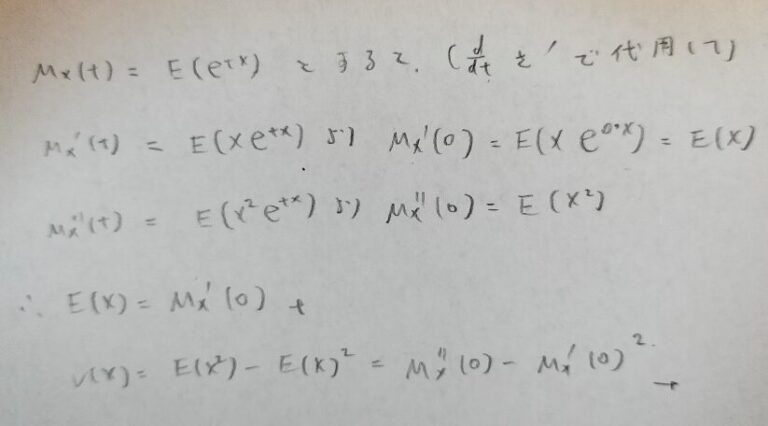 Mx(t) = E(e^tx) とすると. (d/dt を ′ で代用して)
Mx′(t) = E(Xe^tx) より Mx′(0) = E(X e^0·x) = E(X)
Mx″(t) = E(X²e^tx) より Mx″(0) = E(X²)
∴ E(X) = Mx′(0)
V(X) = E(X²) - E(X)² = Mx″(0) - Mx′(0)².